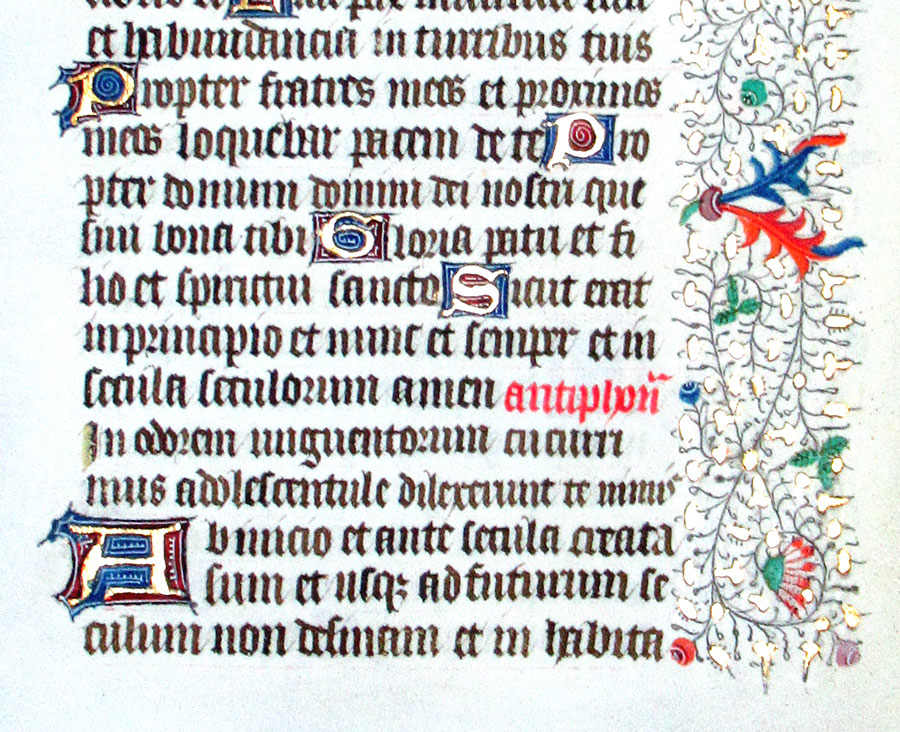 et habundancia in turribus tuis
Propter fratres meos et proximos
meos loquebar pacem de te Pro
pter domum domini dei nostri que
sivi bona tibi Gloria patri et fi
lio et spiritui sancto Sicut erat
in principio et nunc et semper et in
secula seculorum amen antiphona
In odorem unguentorum curri
mus adolescentule dilexerunt te nimis
Ab inicio et ante secula creata
sum et usq; ad futurum se
culum non desinam et in habita